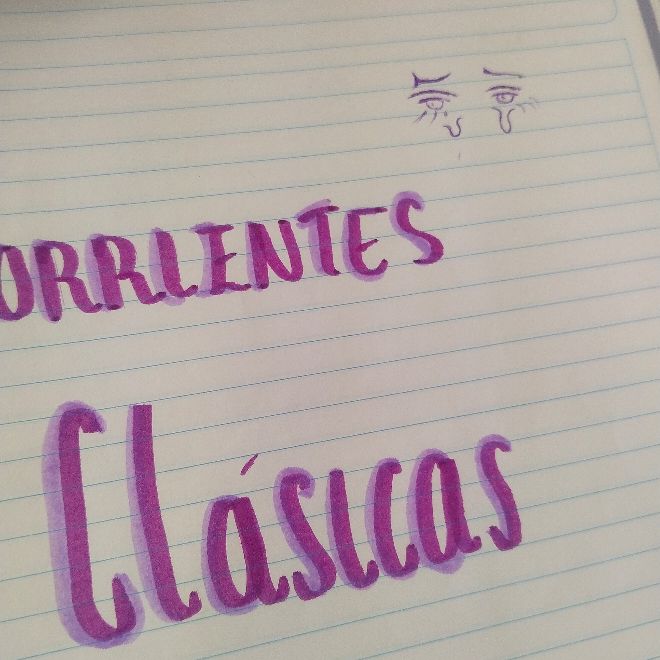 ORRIENTES
Clásicas